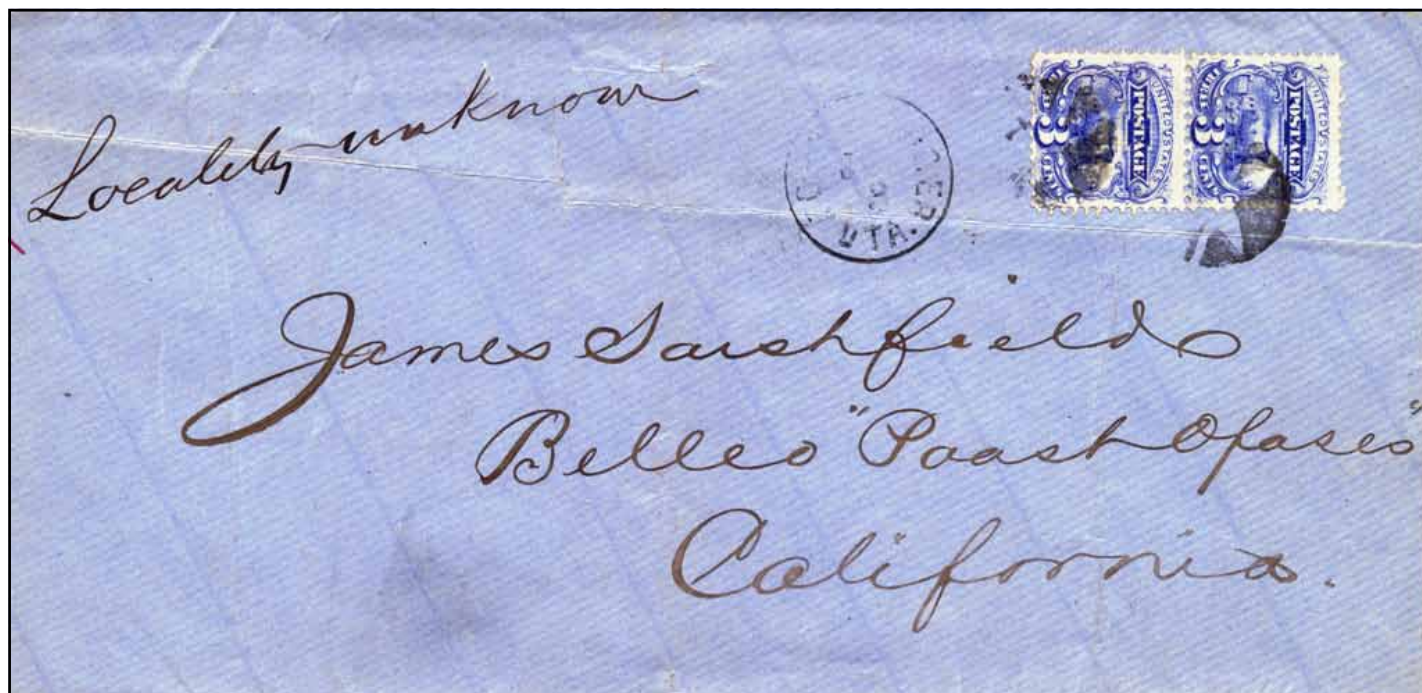 Locality unknown
UTA.
UNITED STATES
POSTAGE
3
CENTS
UNITED STATES
POSTAGE
3
CENTS
James Sarshfield
Belleo "Poast Ofases"
California.